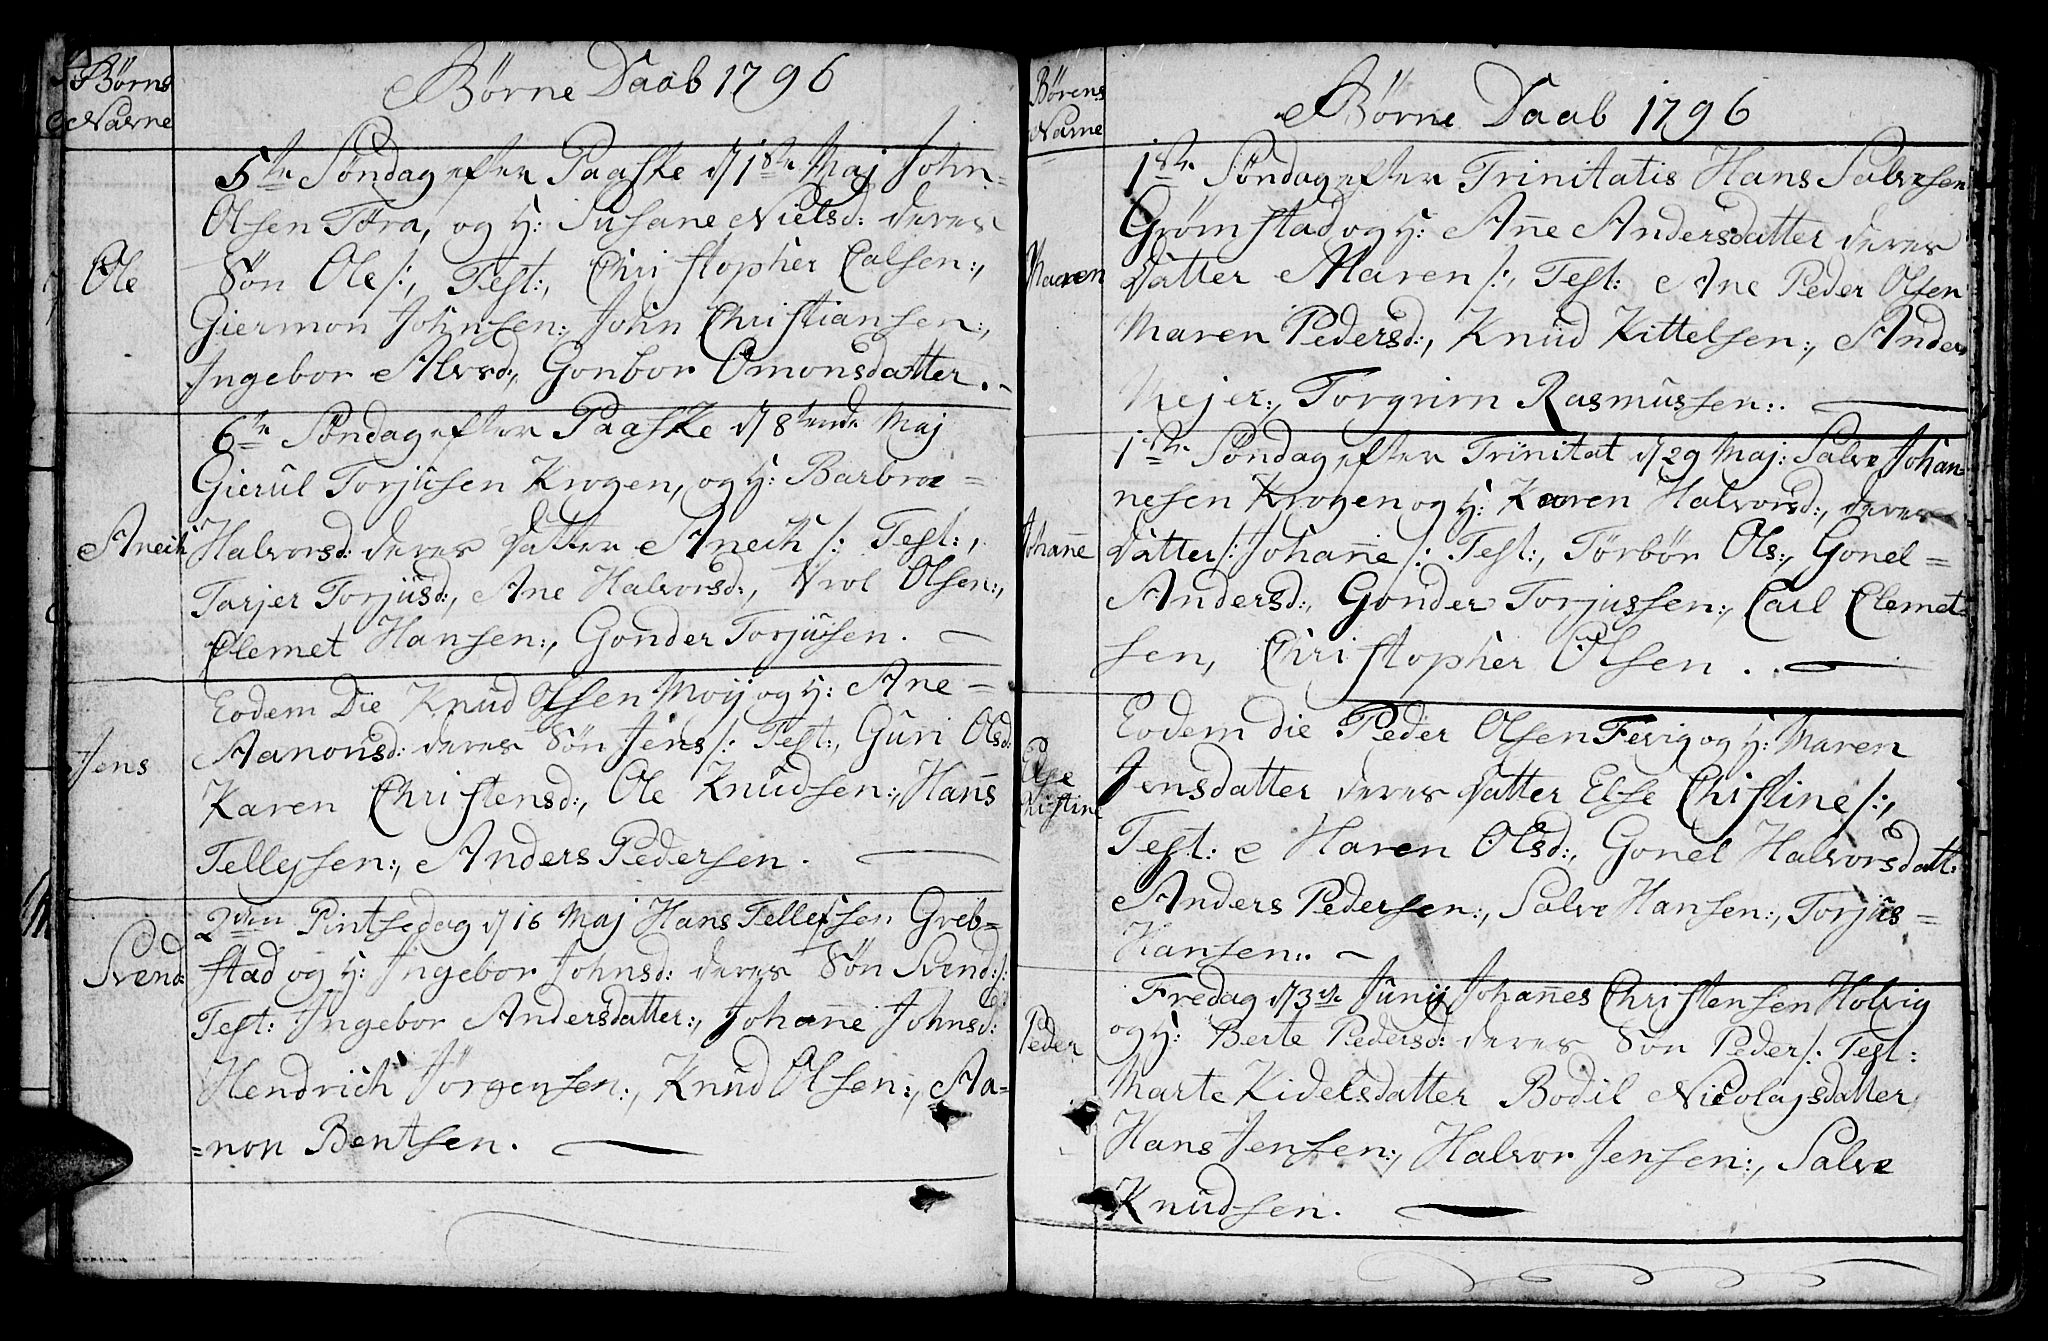 Børns
Navne
Børne Daab 1796
Ole
5te Søndag efter Paaske d 1ste Maj John
Olsen Tøra, og H: Susane Nielsd: deres
Søn Ole /:, Test:, Christopher Calsen:,
Giermon Johnsen:, John Christiansen:,
Ingebor Alvsd:, Gonbor Omonsdatter.
6te Søndag efter Paaske d 8tende Maj
Gierul Torjusen Krogen, og H: Barbroe =
Anech
Halvorsd: deres Datter Anech /: Test:,
Tarjer Torjusd:, Ane Halvorsd:, Vrol Olsen:,
Clemet Hansen:, Gonder Torjusen.
Eodem Die Knud Olsen Moij og H: Ane =
Jens
Aanonsd: deres Søn Jens /: Test:, Guri Olsd:
Karen Christensd:, Ole Knudsen:, Hans
Tellefsen:, Anders Pedersen.
2den Pintsedag d 16 Maj Hans Tellefsen Greb=
Svend
stad og H: Ingebor Johnsd: deres Søn Svend:/:
Test: Ingebor Andersdatter:, Johanne Johnsd:
Hendrich Jørgensen:, Knud Olsen:, Aa=
=non Bentsen.
Børens
Navne
Børne Daab 1796
1ste Søndag efter Trinitatis Hans Salvesen
Grømstad og H: Ane Andersdatter deres
Maren
Datter Maren /:, Test: Ane Peder Olsen
Maren Pedersd:, Knud Kittelsen:, Anders
Mejer:, Torgrim Rasmussen:.
1ste Søndag efter Trinitat d 29 Maj: Salve Johan=
nesen Krogen og H: Karen Halvorsd:, deres
Johane
Datter /: Johane /: Test:, Tørbør Ols:, Gonel =
Andersd:, Gonder Torjussen:, Carl Clemet=
sen, Christopher Olsen.
Eodem die Peder Olsen Fevig og H: Maren
Else
Christine
Jensdatter deres Datter Else Christine /:,
Test: Haren Olsd:, Gonel Halvorsdatt:
Anders Pedersen:, Salve Hansen:, Torjus =
Hansen:.
Fredag d 3de Junij Johanes Christensen Holvig
Peder
og H: Berte Pedersd: deres Søn Peder /: Test:
Marte Kidelsdatter Bodil Nicolajsdatter
Hans Jensen:, Halvor Jensen:, Salve
Knudsen.